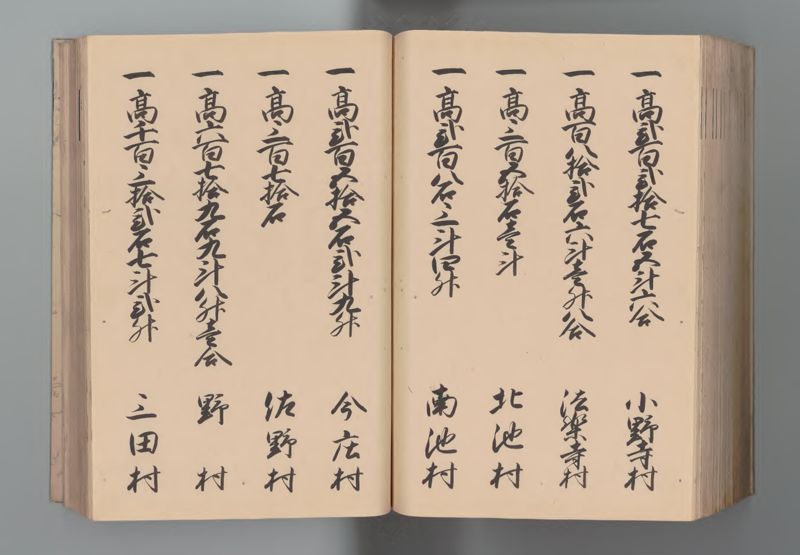 一高弐百弐拾七石五斗六合 小野寺村
一高百八拾弐石六斗壱升八合 法楽寺村
一高三百五拾石壱斗 北池村
一高弐百八石三斗四升 南池村
一高弐百五拾五石弐斗九升 今庄村
一高三百七拾石 佐野村
一高六百七拾九石九斗八升壱合 野村
一高千百三拾弐石七斗弐升 三田村